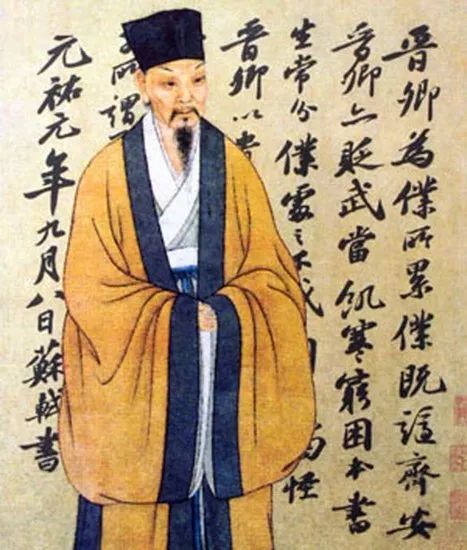 晉卿為僕所累僕既謫齊安
晉卿亦貶武當飢寒窮困本書
生常分僕處之不怪
晉卿以
所謂
元祐元年九月八日蘇軾書